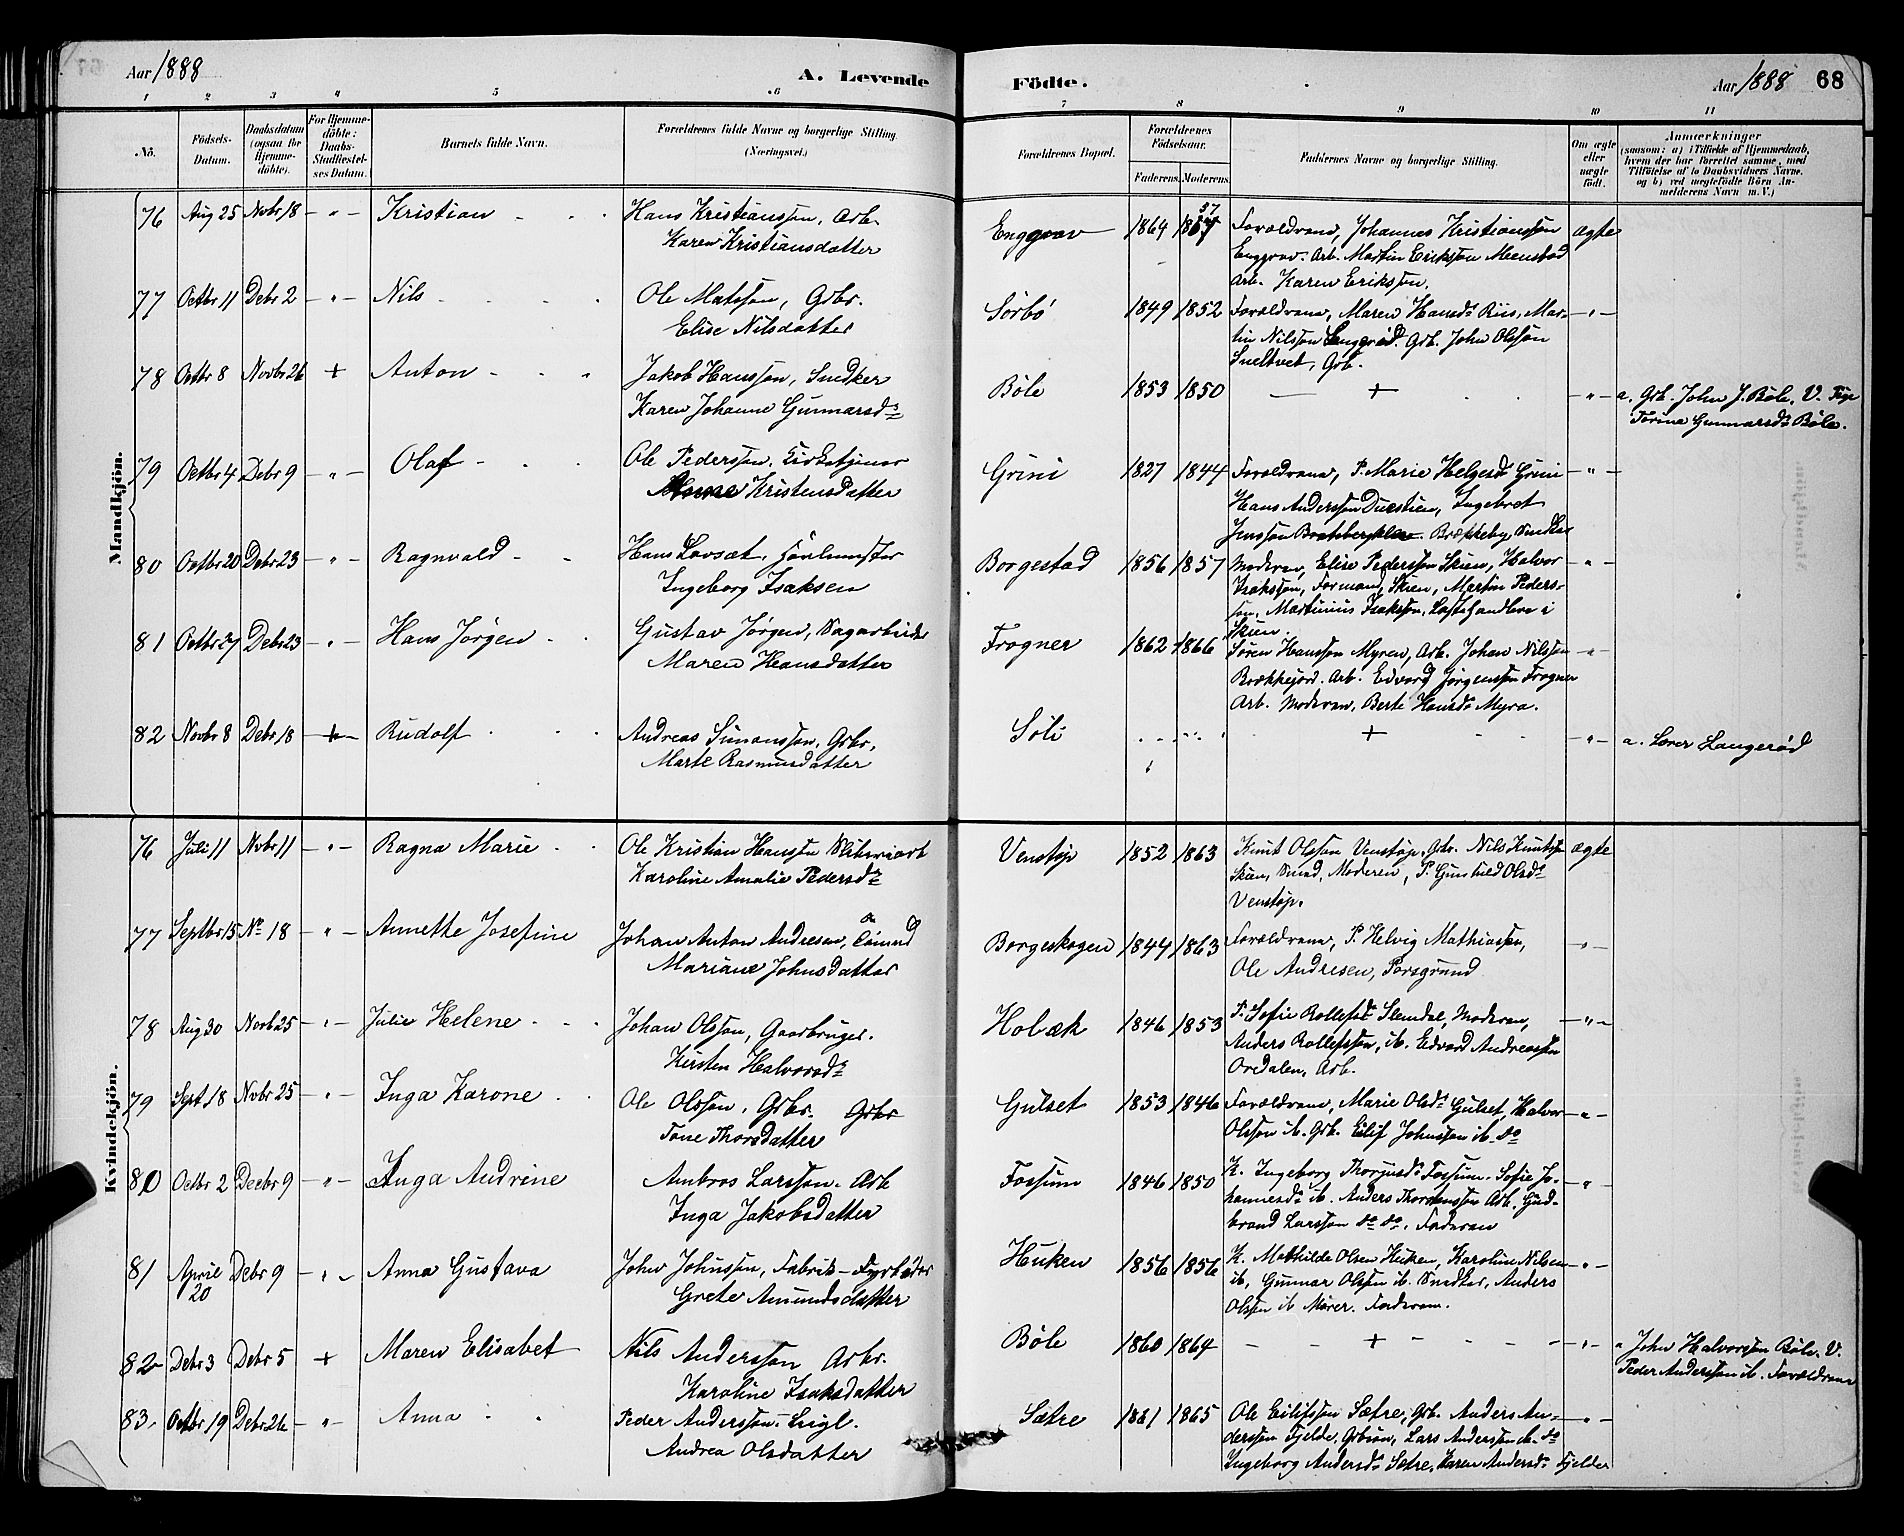 Aar 1888
A. Levende
Födte.
Aar 1888 68
1 2 3 4 5 6 7 8 9 10 11
No.
Födsels-Datum.
Daabsdatum (ogsaa for Hjemme-döbte).
For Hjemme-döbte: Daabs-Stadfæstel-ses Datum.
Barnets fulde Navn.
Forældrenes fulde Navne og borgerlige Stilling.
(Næringsvei.)
Forældrenes Bopæl.
Forældrenes Födselsaar.
Faderens. Moderens.
Faddernes Navne og borgerlige Stilling.
Om ægte eller uægte født.
Anmærkninger
(saasom: a) i Tilfælde af Hjemmedaab, hvem der har forrettet samme, med Tilföielse af to Daabsvidners Navne, og b) ved uægtefödte Börn An-melderens Navn m. V.)
Mandkjön.
76 Aug 25 Novbr 18 - " - Kristian - - - Hans Kristiansson, Arb. Karen Kristiansdatter
Enggrav 1864 57 Forældrene, Johannes Kristiansson ægte
Enggrav. Arb. Martin Eriksson Meenstad
Arb. Karen Eriksson.
77 Octbr 11 Debr 2 - " - Nils - - - Ole Matsson, Grbr. Elise Nilsdatter
Sörbö 1849 1852 Forældrene, Maren Hansdr Riis, Mar- - " -
tin Nilsson Grb. John Olsson
Sneltvet, Grb.
78 Octbr 8 Novbr 26 + Anton - - - Jakob Hansson, Snedker Karen Johanne Gunnarsdr
Böle 1853 1850 - + - " - a. Grb. John J. Böle. V. Pige
Torine Gunnarsdr Böle.
79 Octbr 4 Debr 9 - " - Olaf - - - Ole Pedersson, Kirketjener Kristensdatter
Grini 1827 1844 Forældrene, P. Marie Helgesdr Grini - " -
Hans Andersson Ingebret
Jensson Brækkeby, Snedker
80 Octbr 20 Debr 23 - " - Ragnvald - - Hans Lovsæt, Ingeborg Isaksen
Borgestad 1856 1857 Moderen, Elise Pedersson Skien, Halvor - " -
Isaksson, Formand, Skien, Martin Peders-
son, Martinius Isaksson, i
Skien.
81 Octbr 27 Debr 23 - " - Hans Jörgen - - Gustav Jörgen, Sagarbeider Maren Hansdatter
Frogner 1862 1866 Sören Hansson Myren, Arb. Johan Nilsson - " -
Brækkejord. Arb. Edvard Jörgensson Frogner
Arb. Moderen, Berte Hansdr Myra.
82 Novbr 8 Debr 18 + Rudolf - - - Andreas Simonsson, Grbr. Marte Rasmusdatter
Söli + - " - a. Lærer Langeröd
Kvindekjön.
76 Juli 11 Novbr 11 - " - Ragna Marie - - Ole Kristian Hansson Karoline Amalie Pedersdr
Venstöp 1852 1863 Knut Olsson Venstöp, Grb. Nils Knutsson ægte
Skien, Smed, Moderen, P. Gunhild Olsdr
Venstöp.
77 Septbr 15 Nr 18 - " - Annette Josefine Johan Anton Andresen, Mariane Johnsdatter
Borgeskogen 1844 1863 Forældrene, P. Helvig Mathiassen, - " -
Ole Andresen, Porsgrund
78 Aug 30 Novb 25 - " - Julie Helene - - Johan Olsson, Gaardbruger. Kirsten Halvorsdr
Holæk 1846 1853 P. Sofie Rollefsdr Slemdal, Moderen, - " -
Anders Rollefsson, ib. Edvard Andreassen
Ordalen, Arb.
79 Sept 18 Novbr 25 - " - Inga Karone - - Ole Olsson, Grbr. Grbr Tone Thorsdatter
Gulset 1853 1846 Forældrene, Marie Olsdr Gulset, Halvor - " -
Olsson ib. Grb. Eilif Johnsson ib. do
80 Octbr 2 Decbr 9 - " - Inga Andrine Ambros Larsson. Arb Inga Jakobsdatter
Fossum 1846 1850 K. Ingeborg Thorjusdr Fossum. Sofie Jo- - " -
hannesdr ib. Anders Thorstensson Arb. Gud-
brand Larsson do do. Faderen
81 April 20 Debr 9 - " - Anna Gustava John Johnsson, Fabrik-Fyrböder Grete Amundsdatter
Huken 1856 1856 K. Mathilde Olsen Huken, Karoline Nilsen - " -
ib, Gunnar Olsson ib. Snedker, Anders
Olsson ib Murer. Faderen.
82 Debr 3 Debr 5 + Maren Elisabet Nils Andersson Arbr. Karoline Isaksdatter
Böle 1860 1864 - - + - - - " - a John Halvorsson Böle. V.
Peder Andersson ib. Forældrene
83 Octbr 19 Debr 26 - " - Anna - - Peder Andersson, Leigl. Andrea Olsdatter
Sætre 1861 1865 Ole Eilifsson Sætre, Grb. Anders An- - " -
dersson Fjelde, Lars Andersson ib. do
Ingeborg Andersdr Sætre, Karen Andersdr Fjelder